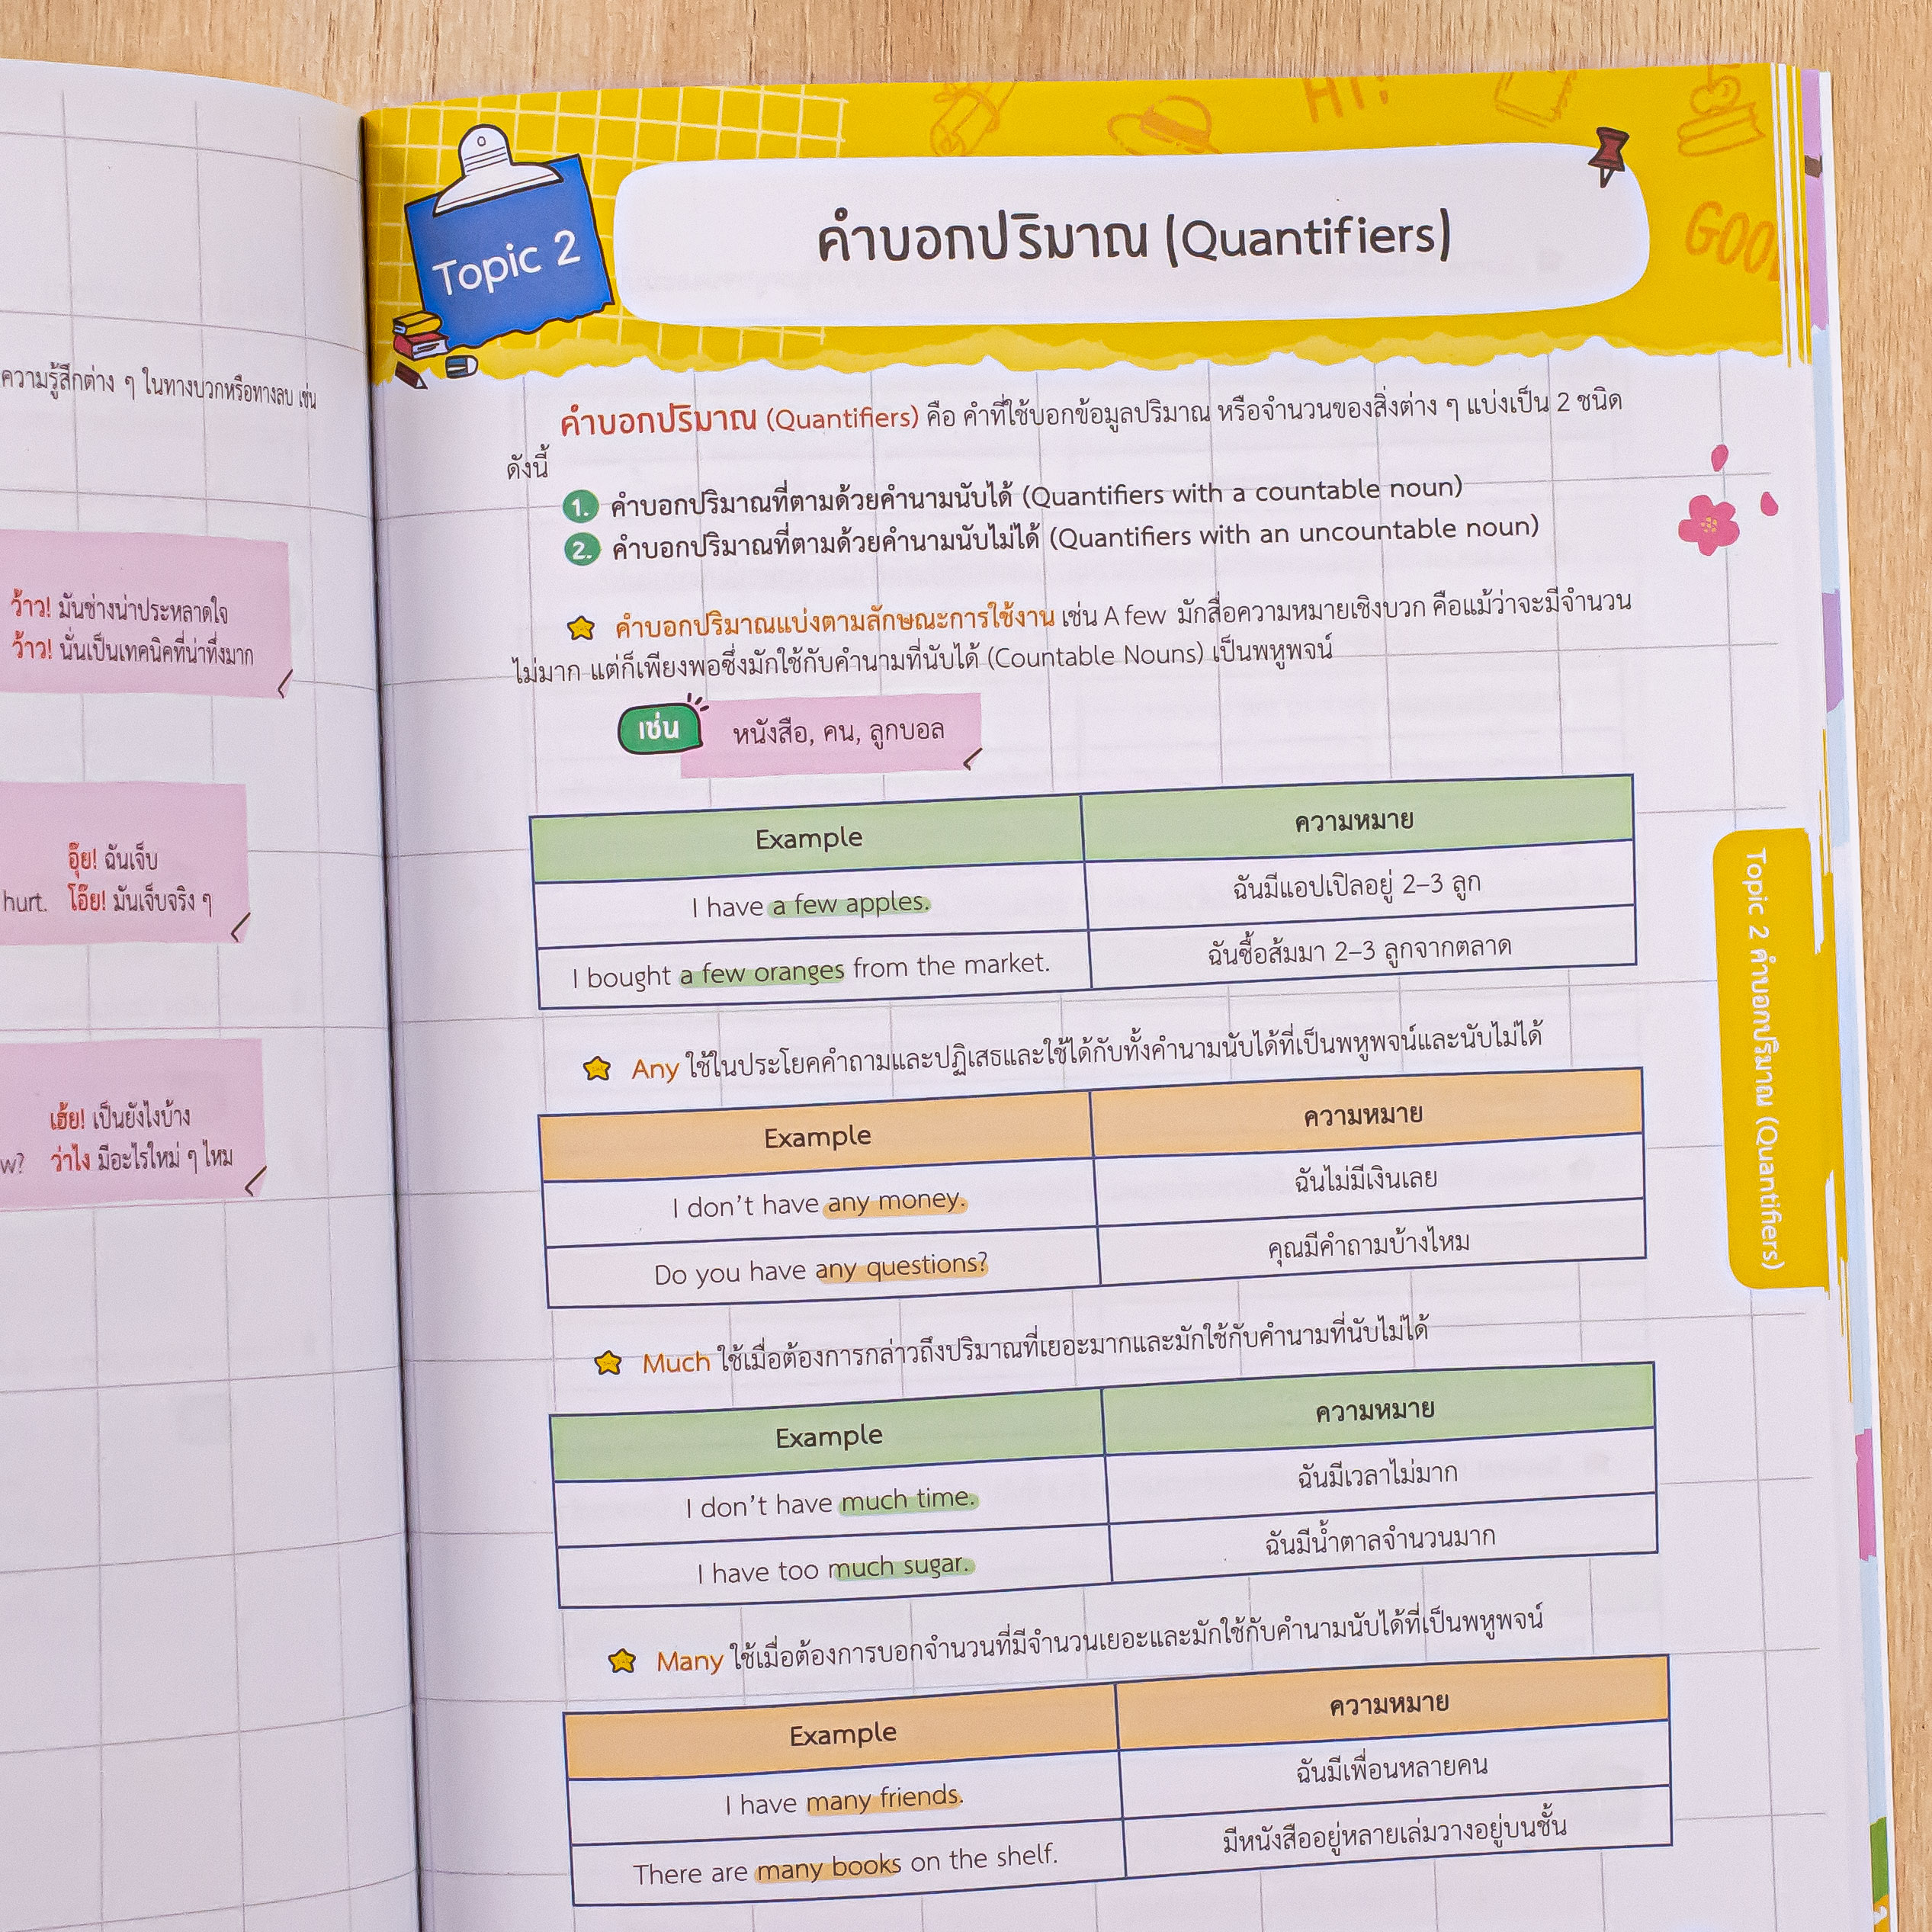 ความรู้สึกต่าง ๆ ในทางบวกหรือทางลบ เช่น
ว้าว! มันช่างน่าประหลาดใจ
ว้าว! นั่นเป็นเทคนิคที่น่าทึ่งมาก
อุ๊ย! ฉันเจ็บ
hurt. โอ๊ย! มันเจ็บจริง ๆ
เฮ้ย! เป็นยังไงบ้าง
w? ว่าไง มีอะไรใหม่ ๆ ไหม
HI!
GOO
Topic 2
คำบอกปริมาณ (Quantifiers)
คำบอกปริมาณ (Quantifiers) คือ คำที่ใช้บอกข้อมูลปริมาณ หรือจำนวนของสิ่งต่าง ๆ แบ่งเป็น 2 ชนิด
ดังนี้
1. คำบอกปริมาณที่ตามด้วยคำนามนับได้ (Quantifiers with a countable noun)
2. คำบอกปริมาณที่ตามด้วยคำนามนับไม่ได้ (Quantifiers with an uncountable noun)
คำบอกปริมาณแบ่งตามลักษณะการใช้งาน เช่น A few มักสื่อความหมายเชิงบวก คือแม้ว่าจะมีจำนวน
ไม่มาก แต่ก็เพียงพอซึ่งมักใช้กับคำนามที่นับได้ (Countable Nouns) เป็นพหูพจน์
เช่น หนังสือ, คน, ลูกบอล
Example ความหมาย
I have a few apples. ฉันมีแอปเปิลอยู่ 2–3 ลูก
I bought a few oranges from the market. ฉันซื้อส้มมา 2–3 ลูกจากตลาด
Any ใช้ในประโยคคำถามและปฏิเสธและใช้ได้กับทั้งคำนามนับได้ที่เป็นพหูพจน์และนับไม่ได้
Example ความหมาย
I don't have any money. ฉันไม่มีเงินเลย
Do you have any questions? คุณมีคำถามบ้างไหม
Much ใช้เมื่อต้องการกล่าวถึงปริมาณที่เยอะมากและมักใช้กับคำนามที่นับไม่ได้
Example ความหมาย
I don't have much time. ฉันมีเวลาไม่มาก
I have too much sugar. ฉันมีน้ำตาลจำนวนมาก
Many ใช้เมื่อต้องการบอกจำนวนที่มีจำนวนเยอะและมักใช้กับคำนามนับได้ที่เป็นพหูพจน์
Example ความหมาย
I have many friends. ฉันมีเพื่อนหลายคน
There are many books on the shelf. มีหนังสืออยู่หลายเล่มวางอยู่บนชั้น
Topic 2 คำบอกปริมาณ (Quantifiers)